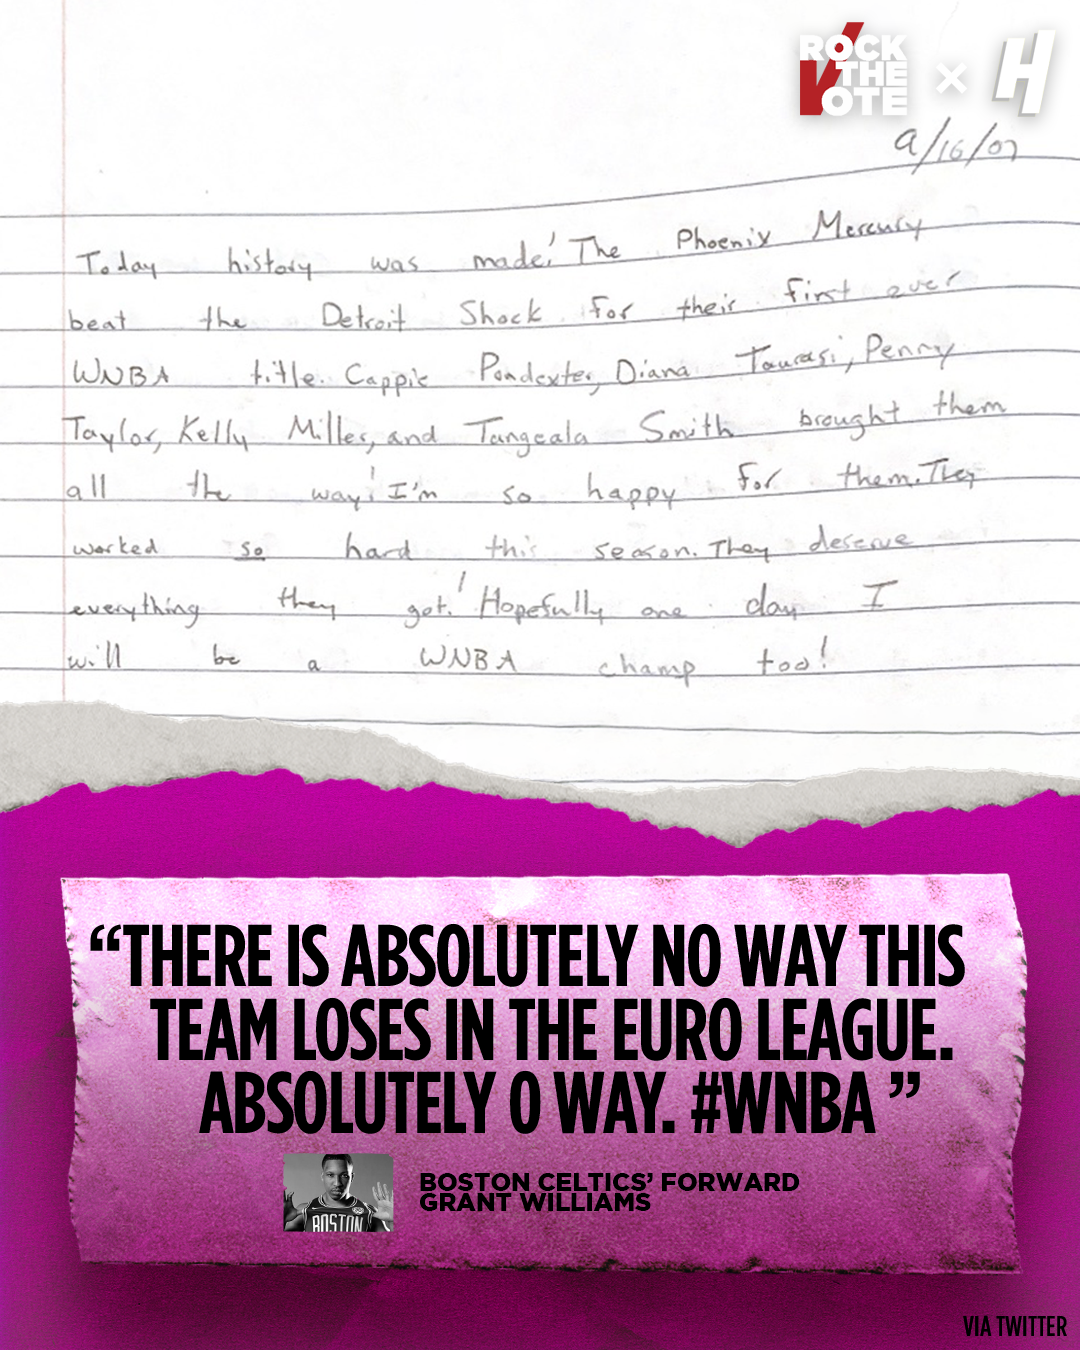 ROCK
THE
VOTE
× H
9/16/07
Today history was made! The Phoenix Mercury
beat the Detroit Shock for their first ever
WNBA title. Cappie Pondexter, Diana Taurasi, Penny
Taylor, Kelly Miller, and Tangeala Smith brought them
all the way! I'm so happy for them. They
worked so hard this season. They deserve
everything they got! Hopefully one day I
will be a WNBA champ too!
“THERE IS ABSOLUTELY NO WAY THIS
TEAM LOSES IN THE EURO LEAGUE.
ABSOLUTELY 0 WAY. #WNBA ”
BOSTON
BOSTON CELTICS’ FORWARD
GRANT WILLIAMS
VIA TWITTER